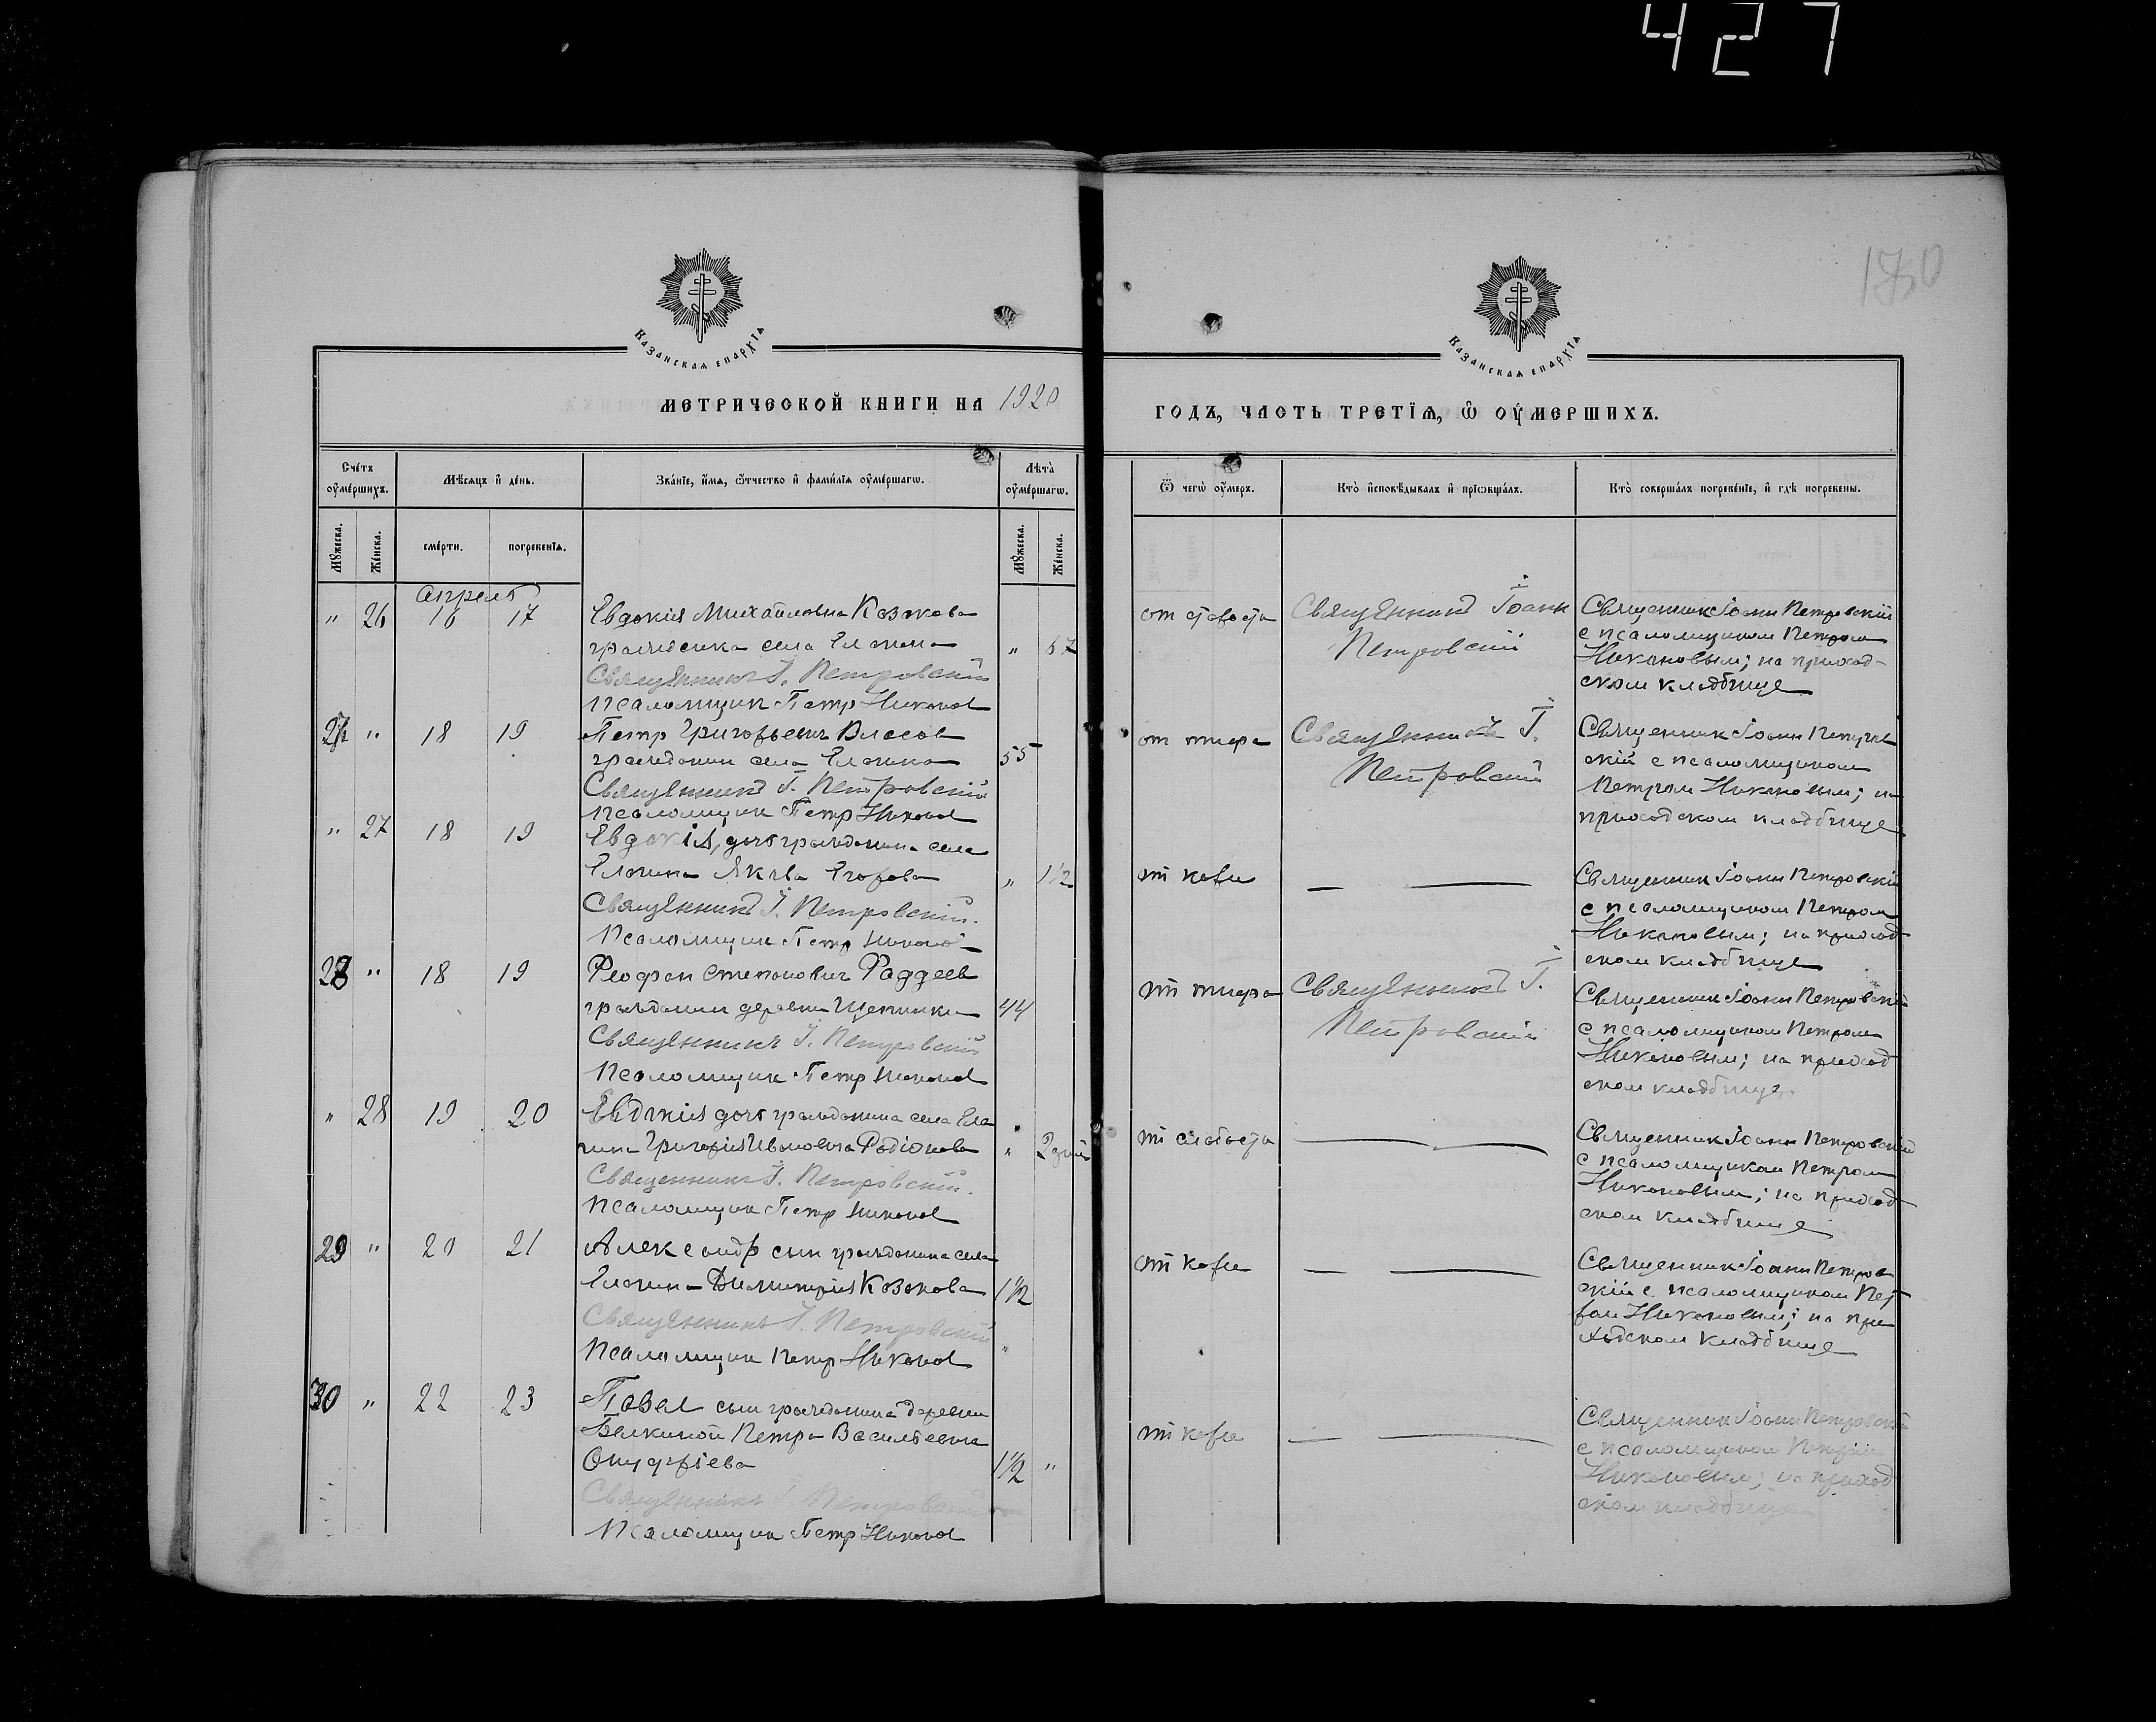 427
180
Казанская епархїя
Казанская епархїя
метрической книги на 1920
годъ, часть третїя, ѿ оумершихъ.
Счетъ оумершихъ.
Мѣсяцъ и день.
Званїе, имя, ѿтчество и фамилїя оумершагѡ.
Лѣта оумершагѡ.
Ѿ чегѡ оумеръ.
Кто исповѣдывалъ и прїѡбщалъ.
Кто совершалъ погребенїе, и гдѣ погребены.
Мужеска.
Женска.
смерти.
погребенїя.
Мужеска.
Женска.
Апрель
" 26 16 17 Евдокія Михайловна Козакова
гражданка села
" 67
Священникъ І. Петровскій
Псаломщик Петр Никонов
от старости
Священникъ Іоанн
Петровский
Священник Іоанн Петровскій
с псаломщиком Петром
Никоновым; на приход-
ском кладбище
27 " 18 19 Петр Григорьевич Власов
гражданин села
55
Священникъ І. Петровскій
Псаломщик Петр Никонов
от тифа
Священникъ І.
Петровский
Священник Іоанн Петров
скій с псаломщиком
Петром Никоновым; на
приходском кладбище
" 27 18 19 Евдокія, дочь гражданина села
Якова Егорова
" 1 1/2
Священникъ І. Петровскій.
Псаломщик Петр Никонов
от кори
— —
Священник Іоанн Петровскій
с псаломщиком Петром
Никоновым; на приход
ском кладбище
28 " 18 19 Феофан Степанович Фаддеев
гражданин деревни
44
Священникъ І. Петровскій
Псаломщик Петр Никонов
от тифа
Священникъ І.
Петровскій
Священник Іоанн Петровскій
с псаломщиком Петром
Никоновым; на приход
ском кладбище.
" 28 19 20 Евдокія дочь гражданина села
Григорія Ивановича Родіонова
" 2 дней
Священникъ І. Петровскій.
Псаломщик Петр Никонов
от слабости
— —
Священник Іоанн Петровский
с псаломщиком Петром
Никоновым; на приход
ском кладбище
29 " 20 21 Александр сын гражданина села
Димитрія Козакова
1 1/2
Священникъ І. Петровскій
Псаломщик Петр Никонов
от кори
— —
Священник Іоанн Петров
скій с псаломщиком Пет
ром Никоновым; на при
ходском кладбище
30 " 22 23 Павел сын гражданина деревни
Петра Васильевича
Онуфріева
1 1/2 "
Священникъ І. Петровскій
Псаломщик Петр Никонов
от кори
— —
Священник Іоанн Петровскій
с псаломщиком Петром
Никоновым; на приход
ском кладбище